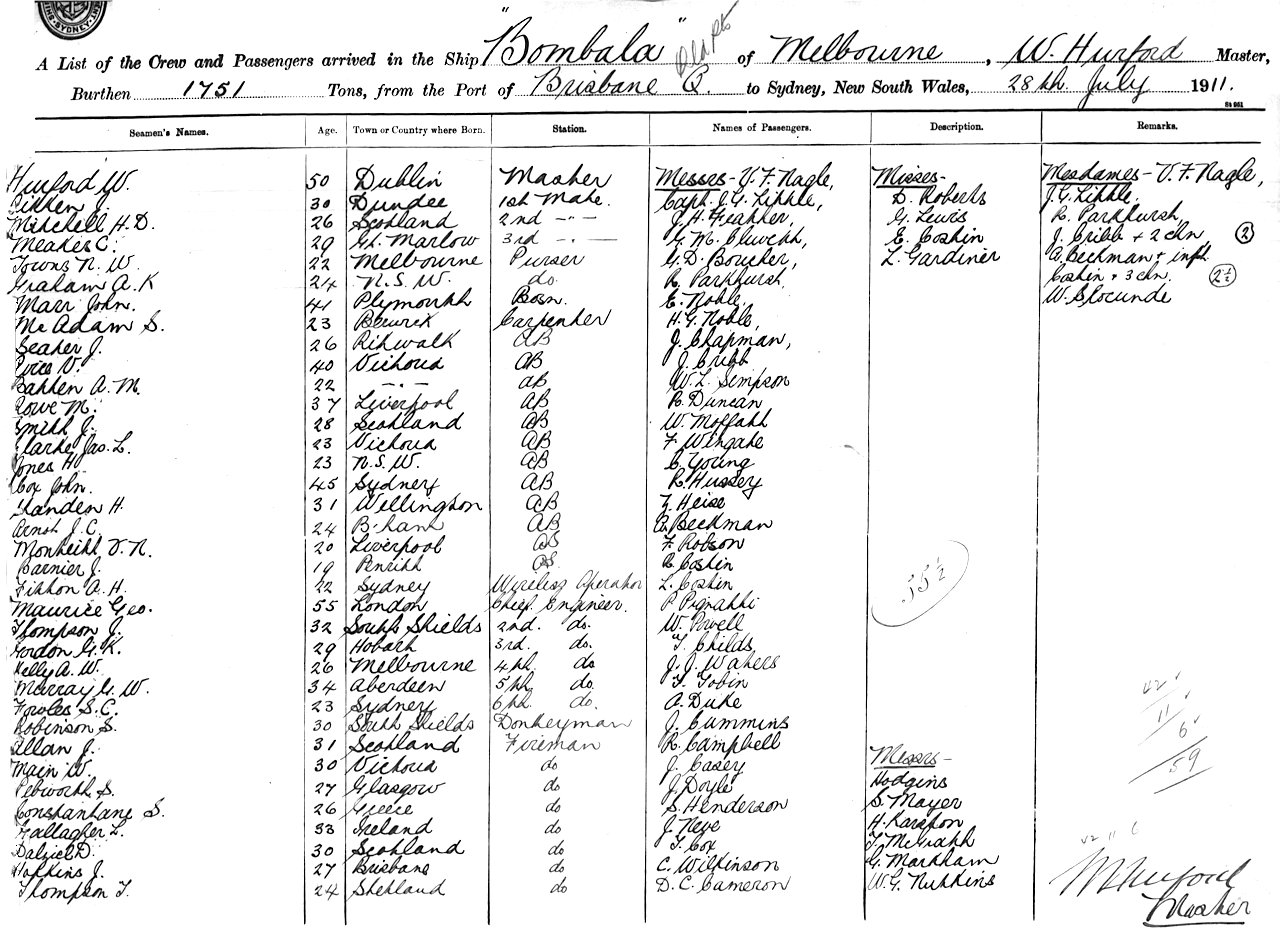 INS. SYDNEY. INS
A List of the Crew and Passengers arrived in the Ship "Bombala" of Melbourne, W. Hurford Master,
Burthen 1751 Tons, from the Port of Brisbane Q. to Sydney, New South Wales, 28th July 1911.
Seamen's Names. Age. Town or Country where Born. Station. Names of Passengers. Description. Remarks.
Hurford W. 50 Dublin Master Messrs - V. F. Nagle, Misses - Mesdames - V. F. Nagle,
Pitken J. 30 Dundee 1st Mate. Capt. J. G. Little, D. Roberts J. G. Little,
Mitchell H. D. 26 Scotland 2nd -"- J. H. Geakher, G. Lewis R. Parkhurst,
Meakes C. 29 Gt. Marlow 3rd -"- G. M. E. Costin J. Cribb + 2 chn (2)
Towns N. W. 22 Melbourne Purser G. D. Boucher, L. Gardiner A. Beckman + inft
Graham A. K 24 N. S. W. do. R. Parkhurst, Costin + 3 chn. (2½)
Marr John. 41 Plymouth Bosn. E. Noble, W. Slocunde
Mc Adam S. 23 Berwick Carpenter H. G. Noble,
Seater J. 26 AB J. Chapman,
Price W. 40 Victoria AB J. Cribb
Bakken A. M. 22 -"- AB W. L. Simpson
Rowe M. 37 Liverpool AB R. Duncan
Smith J. 28 Scotland AB W. Moffatt
Clarke Jas. L. 23 Victoria AB F. Wingate
Jones H. 23 N. S. W. AB C. Young
Cox John. 45 Sydney AB R. Hussey
Standen H. 31 Wellington AB Z. Heise
Arnot J. C. 24 B'ham AB A. Beckman
Monteith V. R. 20 Liverpool OS F. Robson
Barnier J. 19 Penrith OS R. Costin
Fitton A. H. 22 Sydney Wireless Operator L. Costin 55½
Maurice Geo. 55 London Chief Engineer. P. Pignatti
Thompson J. 32 South Shields 2nd. do. W. Powell
Gordon G. K. 29 Hobart 3rd. do. T. Childs,
Kelly A. W. 26 Melbourne 4th do J. J. Waters
Murray G. W. 34 Aberdeen 5th do. T. Tobin
Fowles S. C. 23 Sydney 6th do. A. Duke
Robinson S. 30 South Shields Donkeyman J. Cummins
Allan J. 31 Scotland Fireman R. Campbell Messrs -
Main W. 30 Victoria do J. Casey Hodgins
Pebworth S. 27 Glasgow do J. Doyle S. Mayer
Constantane S. 26 Greece do S. Henderson H. Karafon
Gallagher L. 33 Ireland do J. Neve T. McGrath
Dalziel D. 30 Scotland do T. Cox G. Markham
Hopkins J. 27 Brisbane do C. Wilkinson W. G. Nuttkins
Thompson T. 24 Shetland do D. C. Cameron
42
11
6
59
42 11 6
W Hurford
Master